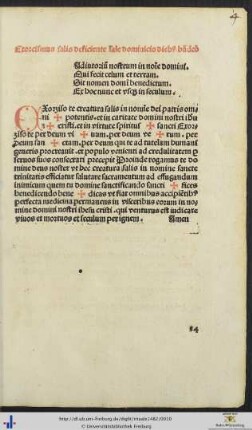 Adiutoriū nostrum in noīe domini.
Qui fecit celum et terram.
Sit nomen domī benedictum.
Ex hoc nunc et vsq; in seculum.
Exorziso te creatura salis in nomīe dei patris omni
✠ potentis. et in caritate domini nostri
✠ cristi. et in virtute spiritus ✠ sancti Exor
ziso te per deum vi ✠ uum. per deum ve ✠ rum. per
deum san ✠ ctum. per deum qui te ad tutelam humani
generis procreauit. et populo venienti ad credulitatem p
seruos suos consecrari precepit Proinde rogamus te do
mine deus noster vt hec creatura salis in nomine sancte
trinitatis efficiatur salutare sacramentum ad effugandum
inimicum quem tu domine sanctificando sancti ✠ fices
benedicendo bene ✠ dicas vt fiat omnibus accipiētibus
perfecta medicina permanens in visceribus eorum in no
mine domini nostri ihesu cristi. qui venturus est iudicare
viuos et mortuos et seculum per ignem. Amen
© Universitätsbibliothek Freiburg